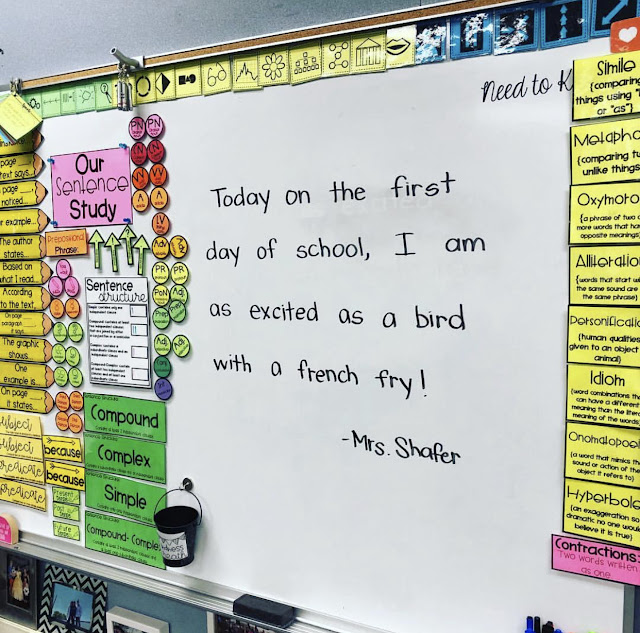 Need to
Our
Sentence
Study
Prepositional
Phrase:
page
text says...
page
noticed...
example...
The author
states...
Based on
what I read
According
to the text,
On page
paragraph
The graphic
shows...
One
example is...
On page
it states...
subject
subject
predicate
predicate
because
because
PN
PN
Adv
PR
PR
Adj
Prep
Prep
Adj
Sentence
structure
Compound
Complex
Simple
Compound-Complex
Today on the first
day of school, I am
as excited as a bird
with a french fry!
-Mrs. Shafer
Simile
{comparing
things using "
or "as"}
Metapho
{comparing tw
unlike things
Oxymoro
{a phrase of two o
more words that hav
opposite meanings}
Alliterati
{words that start wi
the same sound are
the same phrase}
Personificati
{human qualities
given to an object
animal}
Idiom
{word combinations tha
can have a different
meaning than the liter
meaning of the words}
Onomatopoei
{a word that mimics th
sound or action of the
object it refers to}
Hyperbol
{an exaggeration so
dramatic no one woul
believe it is true}
Contractions:
Two words written
as one.